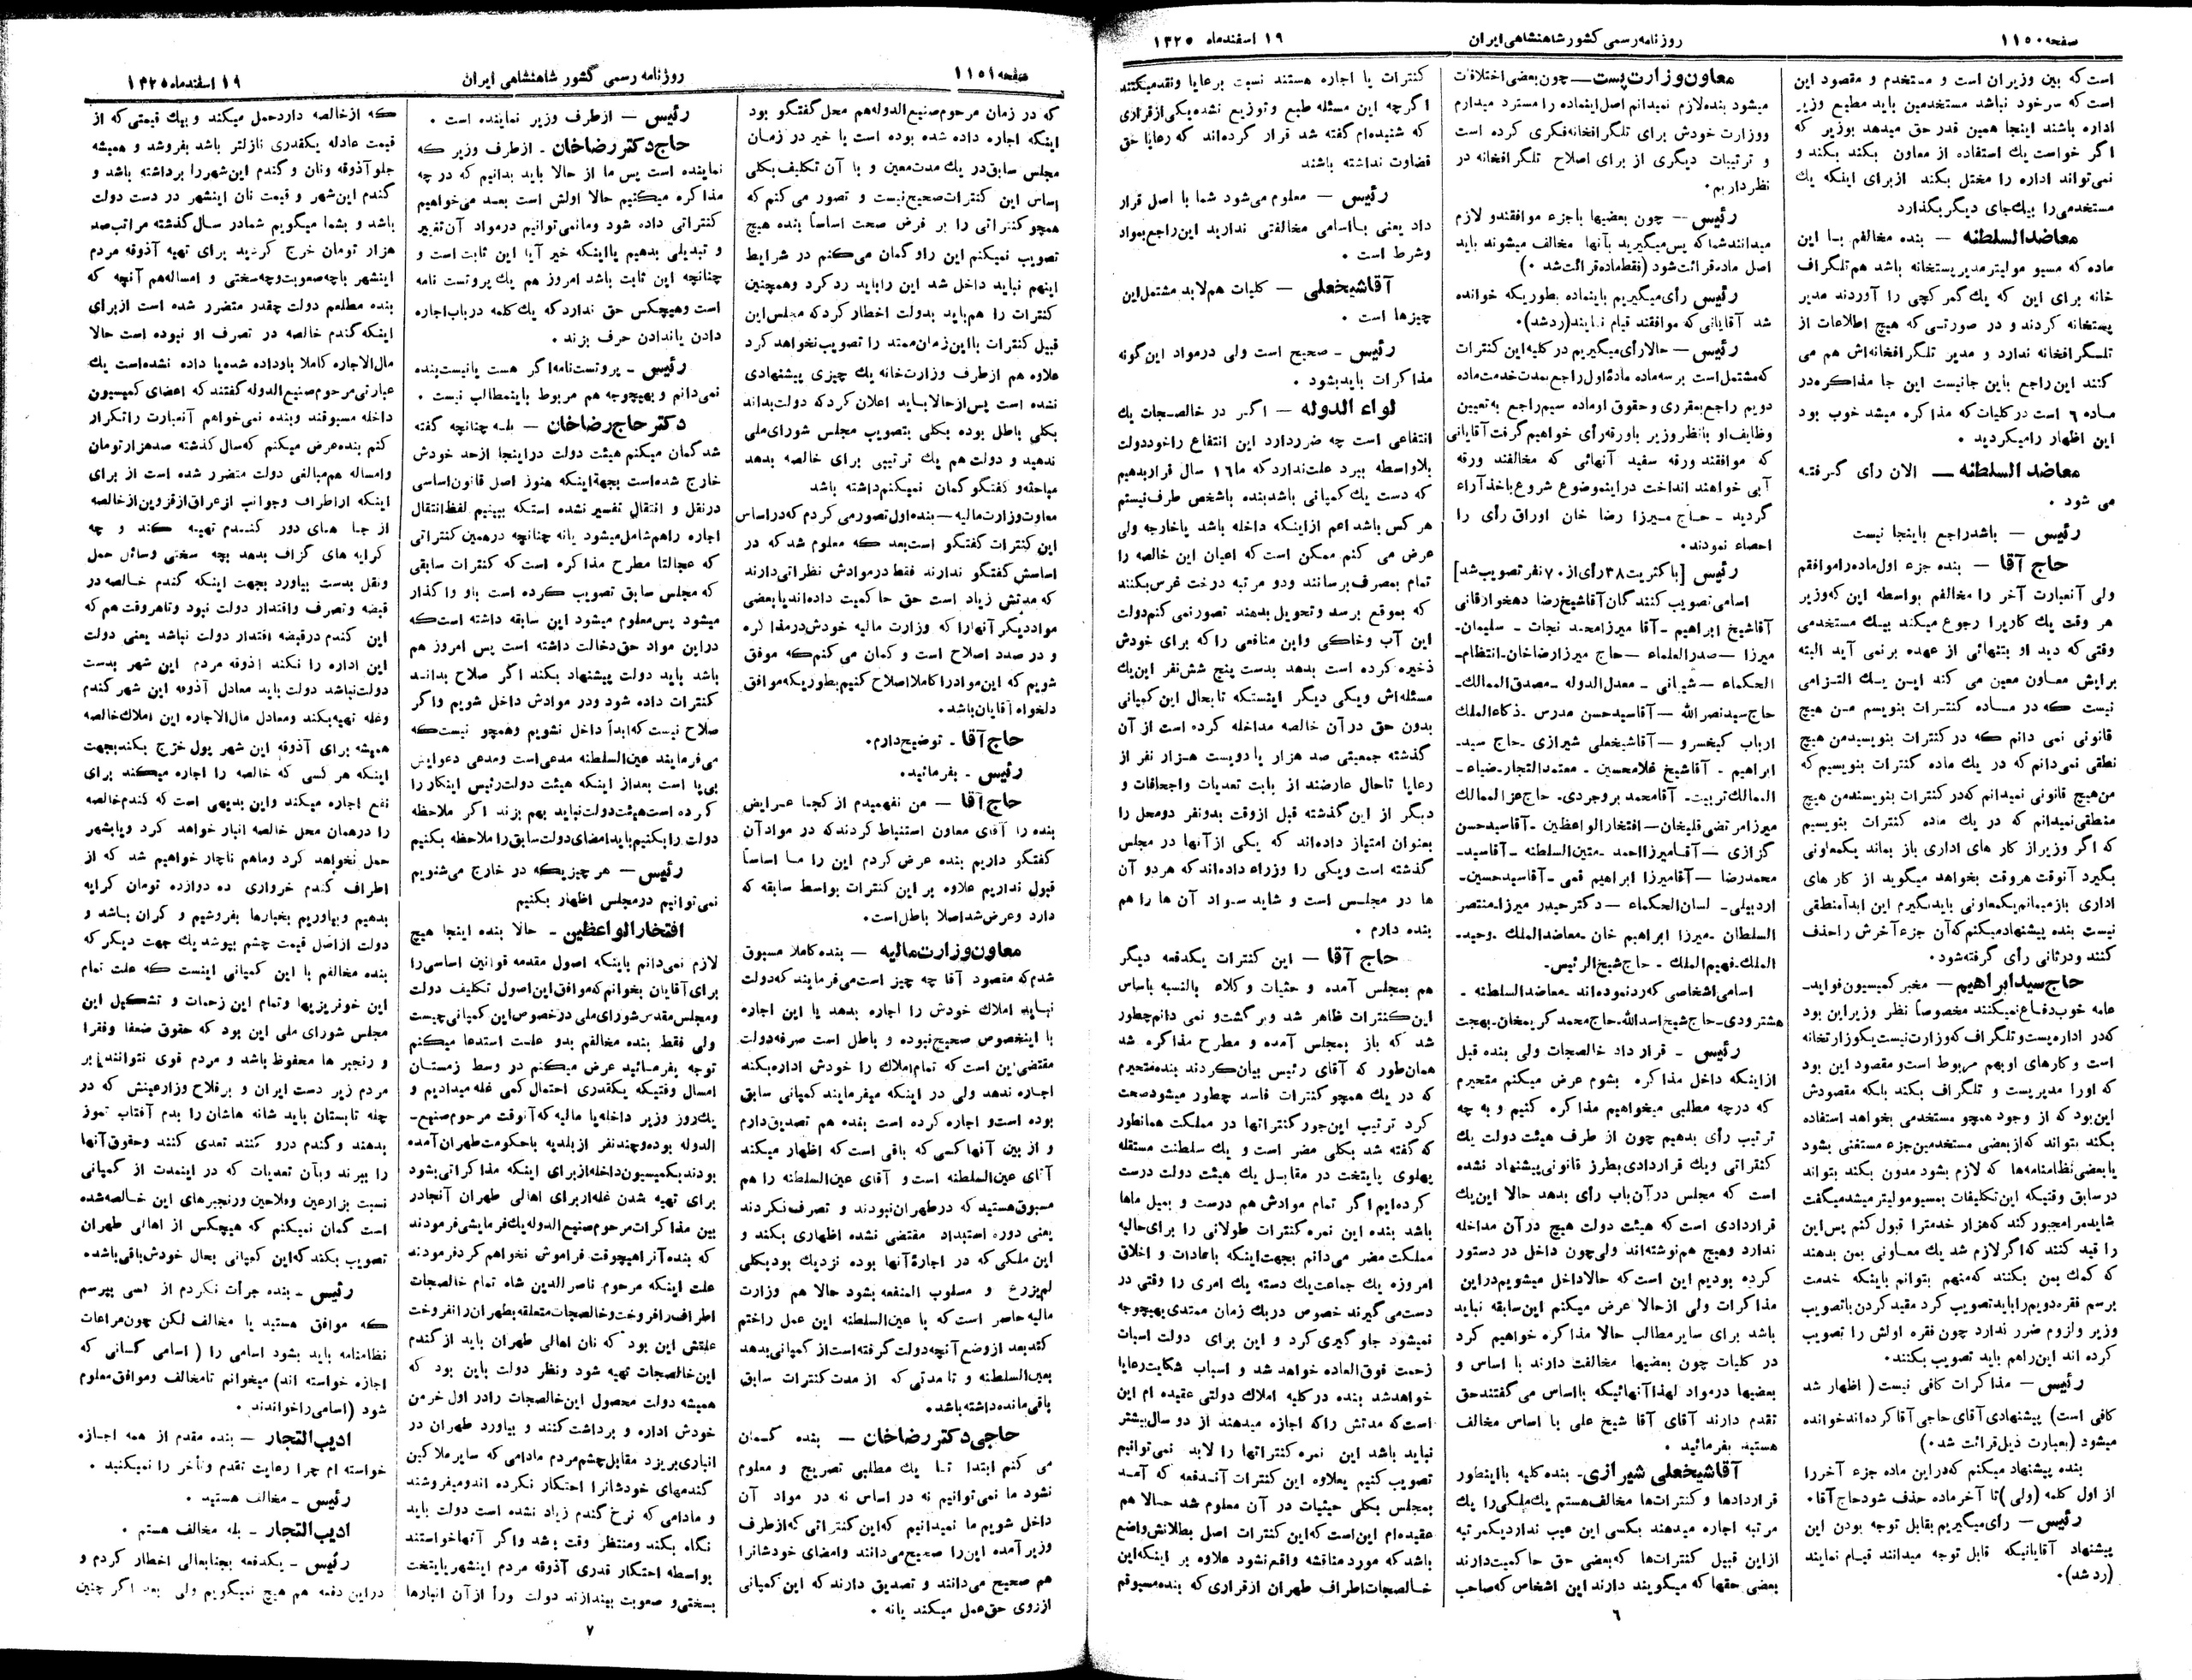 صفحه ۱۱۵۰
روزنامه رسمی کشور شاهنشاهی ایران
۱۹ اسفندماه ۱۳۲۵
است که بین وزیران است و مستخدم و مقصود این
است که سرخود نباشد مستخدمین باید مطیع وزیر
اداره باشند اینجا همین قدر حق میدهد بوزیر که
اگر خواست یك استفاده از معاون بکند بکند و
نمی‌تواند اداره را مختل بکند از برای اینکه یك
مستخدمی را بیك جای دیگر بگذارد
معاضد السلطنه — بنده مخالفم با این
ماده که مسیو مولیتر مدیر پستخانه باشد هم تلگراف
خانه برای این که یك گمر کچی را آوردند مدیر
پستخانه کردند و در صورتی که هیچ اطلاعات از
تلگرافخانه ندارد و مدیر تلگرافخانه‌اش هم می
کنند این راجع باین جا نیست این جا مذاکره در
ماده ۶ است در کلیات که مذاکره میشد خوب بود
این اظهار را میکردید .
معاضد السلطنه — الان رأی گرفته
می شود .
رئیس — باشد راجع باینجا نیست
حاج آقا — بنده جزء اول ماده را موافقم
ولی آنعبارت آخر را مخالفم بواسطه این که وزیر
هر وقت یك کاریرا رجوع میکند بیك مستخدمی
وقتی که دید او بتنهائی از عهده برنمی آید البته
برایش معاون معین می کند این یك التزامی
نیست که در ماده کنترات بنویسم من هیچ
قانونی نمی دانم که در کنترات بنویسید من هیچ
نطقی نمی‌دانم که در یك ماده کنترات بنویسیم که
من هیچ قانونی نمیدانم که در کنترات بنویسند من هیچ
منطقی نمیدانم که در یك ماده کنترات بنویسیم
که اگر وزیر از کار های اداری باز بماند یکمعاونی
بگیرد آنوقت هر وقت بخواهد میگوید از کار های
اداری باز میمانم یکمعاونی باید بگیرم این ابداً منطقی
نیست بنده پیشنهاد میکنم که آن جزء آخرش را حذف
کنند و در ثانی رأی گرفته شود .
حاج سید ابراهیم — مخبر کمیسیون فواید
عامه خوب دفاع نمیکنند مخصوصاً نظر وزیر این بود
که در اداره پست و تلگراف که وزارت نیست یکوزارتخانه
است و کارهای او بهم مربوط است و مقصود این بود
که اورا مدیر پست و تلگراف بکند بلکه مقصودش
این بود که از وجود همچو مستخدمی بخواهد استفاده
بکند بتواند که از بعضی مستخدمین جزء مستغنی بشود
یا بعضی نظامنامه‌ها که لازم بشود مدون بکند بتواند
در سابق وقتیکه این تکلیفات بمسیو مولیتر میشد میگفت
شاید مرا مجبور کند که هزار خدمت را قبول کنم پس این
را قید کنند که اگر لازم شد یك معاونی بمن بدهند
که کمك بمن بکنند که منهم بتوانم باینکه خدمت
برسم فقره دویم را باید تصویب کرد مقید کردن باتصویب
وزیر و لزوم ضرر ندارد چون فقره اولش را تصویب
کرده اند این را هم باید تصویب بکنند .
رئیس — مذاکرات کافی نیست ( اظهار شد
کافی است) پیشنهادی آقای حاجی آقا کرده اند خوانده
میشود (بعبارت ذیل قرائت شد .)
بنده پیشنهاد میکنم که در این ماده جزء آخر را
از اول کلمه (ولی) تا آخر ماده حذف شود حاج آقا .
رئیس — رأی میگیریم بقابل توجه بودن این
پیشنهاد آقایانیکه قابل توجه میدانند قیام نمایند
(رد شد) .
معاون وزارت پست — چون بعضی اختلافات
میشود بنده لازم نمیدانم اصل اینماده را مسترد میدارم
و وزارت خودش برای تلگرافخانه فکری کرده است
و ترتیبات دیگری از برای اصلاح تلگرافخانه در
نظر داریم .
رئیس — چون بعضیها با جزء موافقند و لازم
میدانند شما که پس میگیرید بآنها مخالف میشوند باید
اصل ماده قرائت شود (فقط ماده قرائت شد .)
رئیس رأی میگیریم باینماده بطوریکه خوانده
شد آقایانی که موافقند قیام نمایند (رد شد) .
رئیس — حالا رأی میگیریم در کلیه این کنترات
که مشتمل است بر سه ماده مادهٔ اول راجع بمدت خدمت ماده
دویم راجع بمقرری و حقوق او ماده سیم راجع به تعیین
وظایف او با نظر وزیر با ورقه رأی خواهیم گرفت آقایانی
که موافقند ورقه سفید آنهائی که مخالفند ورقه
آبی خواهند انداخت در اینموضوع شروع باخذ آراء
گردید - حاج میرزا رضا خان اوراق رأی را
احصاء نمودند .
رئیس [با کثریت ۳۸ رأی از ۷۰ نفر تصویب شد]
اسامی تصویب کنندگان آقاشیخ رضا دهخوارقانی
آقاشیخ ابراهیم - آقا میرزا محمد نجات - سلیمان-
میرزا — صدر العلماء — حاج میرزا رضا خان - انتظام-
الحکماء — شیبانی - معدل الدوله - مصدق الممالك-
حاج سید نصرالله — آقا سید حسن مدرس - ذکاء الملك
ارباب کیخسرو — آقا شیخعلی شیرازی - حاج سید-
ابراهیم - آقا شیخ غلامحسین - معتمد التجار - ضیاء-
الممالك تربیت - آقا محمد بروجردی - حاج عز الممالك
میرزا مرتضی قلیخان — افتخار الواعظین - آقا سید حسن
گزازی — آقا میرزا احمد - متین السلطنه - آقا سید-
محمد رضا — آقا میرزا ابراهیم قمی - آقا سید حسین-
اردبیلی - لسان الحکماء — دکتر حیدر میرزا - منتصر
السلطان - میرزا ابراهیم خان - معاضد الملك - وحید-
الملك - فهیم الملك - حاج شیخ الرئیس -
اسامی اشخاصی که رد نموده اند - معاضد السلطنه -
هشترودی - حاج شیخ اسدالله - حاج محمد کریمخان - بهجت
رئیس - قرار داد خالصجات ولی بنده قبل
از اینکه داخل مذاکره بشوم عرض میکنم متحیرم
که در چه مطلبی میخواهیم مذاکره کنیم و به چه
ترتیب رأی بدهیم چون از طرف هیئت دولت یك
کنتراتی و یك قراردادی بطرز قانونی پیشنهاد نشده
است که مجلس در آن باب رأی بدهد حالا این یك
قراردادی است که هیئت دولت هیچ در آن مداخله
ندارد و هیچ هم نوشته اند ولی چون داخل در دستور
کرده بودیم این است که حالا داخل میشویم در این
مذاکرات ولی از حالا عرض میکنم این سابقه نباید
باشد برای سایر مطالب حالا مذاکره خواهیم کرد
در کلیات چون بعضیها مخالفت دارند با اساس و
بعضیها در مواد لهذا آنهائیکه با اساس می گفتند حق
تقدم دارند آقای آقا شیخ علی با اساس مخالف
هستید بفرمائید .
آقا شیخعلی شیرازی - بنده کلیه با اینطور
قراردادها و کنترات‌ها مخالف هستم یك ملکی را یك
مرتبه اجاره میدهند بکسی این عیب ندارد یکمرتبه
از این قبیل کنترات‌ها که بعضی حق حاکمیت دارند
بعضی حقها که میگویند دارند این اشخاص که صاحب
کنترات یا اجاره هستند نسبت برعایا و نقد میکنند
اگرچه این مسئله طبع و توزیع نشده یکی از قراری
که شنیده‌ام گفته شد قرار کرده‌اند که رعایا حق
قضاوت نداشته باشند
رئیس — معلوم می‌شود شما با اصل قرار
داد یعنی با اسامی مخالفتی ندارید این راجع بمواد
و شرط است .
آقا شیخعلی — کلیات هم لابد مشتمل این
چیزها است .
رئیس - صحیح است ولی در مواد این گونه
مذاکرات باید بشود .
لواء الدوله — اگر در خالصجات یك
انتفاعی است چه ضرر دارد این انتفاع را خود دولت
بلاواسطه ببرد علت ندارد که ما ۱۶ سال قرار بدهیم
که دست یك کمپانی باشد بنده باشخص طرف نیستم
هر کس باشد اعم از اینکه داخله باشد یا خارجه ولی
عرض می کنم ممکن است که اعیان این خالصه را
تمام بمصرف برسانند و دو مرتبه درخت غرس بکنند
که بموقع برسد و تحویل بدهند تصور نمی کنم دولت
این آب و خاکی و این منافعی را که برای خودش
ذخیره کرده است بدهد بدست پنج شش نفر این یك
مسئله‌اش و یکی دیگر اینستکه تابحال این کمپانی
بدون حق در آن خالصه مداخله کرده است از آن
گذشته جمعیتی صد هزار یا دویست هزار نفر از
رعایا تا حال عارضند از بابت تعدیات و اجحافات و
دیگر از این گذشته قبل از وقت بدو نفر دو محل را
بعنوان امتیاز داده‌اند که یکی از آنها در مجلس
گذشته است و یکی را وزراء داده‌اند که هر دو آن
ها در مجلس است و شاید سواد آن ها را هم
بنده دارم .
حاج آقا — این کنترات یکدفعه دیگر
هم بمجلس آمده و حثیات وکلاء بالنسبه باساس
این کنترات ظاهر شد و برگشت و نمی دانم چطور
شد که باز بمجلس آمده و مطرح مذاکره شد
همان طور که آقای رئیس بیان کردند بنده متحیرم
که در یك همچو کنترات فاسد چطور میشود صحت
کرد ترتیب این جور کنتراتها در مملکت همانطور
که گفته شد بکلی مضر است و یك سلطنت مستقله
پهلوی پایتخت در مقابل یك هیئت دولت درست
کرده‌ایم اگر تمام موادش هم درست و بمیل ماها
باشد بنده این نمره کنترات طولانی را برای حالیه
مملکت مضر می‌دانم بجهت اینکه باعادات و اخلاق
امروزه یك جماعت یك دسته یك امری را وقتی در
دست می گیرند خصوص در یك زمان ممتدی بهیچوجه
نمیشود جلوگیری کرد و این برای دولت اسباب
زحمت فوق العاده خواهد شد و اسباب شکایت رعایا
خواهد شد بنده در کلیه املاك دولتی عقیده ام این
است که مدتش را که اجاره میدهند از دو سال بیشتر
نباید باشد این نمره کنتراتها را لابد نمی توانیم
تصویب کنیم بعلاوه این کنترات آندفعه که آمد
بمجلس بکلی حیثیات در آن معلوم شد حالا هم
عقیده‌ام این است که این کنترات اصل بطلانش واضع
باشد که مورد مناقشه واقع نشود علاوه بر اینکه این
خالصجات اطراف طهران از قراری که بنده مسبوقم
۶
صفحه ۱۱۵۱
روزنامه رسمی کشور شاهنشاهی ایران
۱۹ اسفندماه ۱۳۲۵
که در زمان مرحوم صنیع الدوله هم محل گفتگو بود
اینکه اجاره داده شده بوده است یا خیر در زمان
مجلس سابق در یك مدت معین و با آن تکلیف بکلی
اساس این کنترات صحیح نیست و تصور می کنم که
همچو کنتراتی را بر فرض صحت اساساً بنده هیچ
تصویب نمیکنم این را و گمان می کنم در شرایط
اینهم نباید داخل شد این را باید رد کرد و همچنین
کنترات را هم باید بدولت اخطار کرد که مجلس این
قبیل کنترات با این زمان ممتد را تصویب نخواهد کرد
علاوه هم از طرف وزارت خانه یك چیزی پیشنهادی
نشده است پس از حالا باید اعلان کرد که دولت بداند
بکلی باطل بوده بکلی بتصویب مجلس شورای ملی
ندهید و دولت هم یك ترتیبی برای خالصه بدهد
مباحثه و گفتگو گمان نمیکنم داشته باشد
معاون وزارت مالیه — بنده اول تصور می کردم که در اساس
این کنترات گفتگو است بعد که معلوم شد که در
اساسش گفتگو ندارند فقط در موادش نظراتی دارند
که مدتش زیاد است حق حاکمیت داده‌اند یا بعضی
مواد دیگر آنها را که وزارت مالیه خودش در مذاکره
و در صدد اصلاح است و گمان می کنم که موفق
شویم که این مواد را کاملا اصلاح کنیم بطوریکه موافق
دلخواه آقایان باشد .
حاج آقا - توضیح دارم .
رئیس - بفرمائید .
حاج آقا — من نفهمیدم از کجا عرایض
بنده را آقای معاون استنباط کردند که در مواد آن
گفتگو داریم بنده عرض کردم این را ما اساساً
قبول نداریم علاوه بر این کنترات بواسط سابقه که
دارد و عرض شد اصلا باطل است .
معاون وزارت مالیه — بنده کاملا مسبوق
شدم که مقصود آقا چه چیز است می فرمایند که دولت
نباید املاك خودش را اجاره بدهد یا این اجاره
با اینخصوص صحیح نبوده و باطل است صرفه دولت
مقتضی این است که تمام املاك را خودش اداره بکند
اجاره ندهد ولی در اینکه میفرمایند کمپانی سابق
بوده است و اجاره کرده است بنده هم تصدیق دارم
و از بین آنها کسی که باقی است که اظهار میکند
آقای عین السلطنه است و آقای عین السلطنه را هم
مسبوق هستید که در طهران نبودند و تصرف نکردند
یعنی دوره استبداد مقتضی نشده اظهاری بکند و
این ملکی که در اجارهٔ آنها بوده نزدیك بود بکلی
لم یزرع و مسلوب المنفعه بشود حالا هم وزارت
مالیه حاضر است که با عین السلطنه این عمل را ختم
کند بعد از وضع آنچه دولت گرفته است از کمپانی بدهد
بعین السلطنه و تا مدتی که از مدت کنترات سابق
باقی مانده داشته باشد .
حاجی دکتر رضاخان — بنده گمان
می کنم ابتدا تا یك مطلبی تصریح و معلوم
نشود ما نمی توانیم نه در اساس نه در مواد آن
داخل شویم ما نمیدانیم که این کنتراتی که از طرف
وزیر آمده این را صحیح می‌دانند و امضای خودشانرا
هم صحیح می‌دانند و تصدیق دارند که این کمپانی
از روی حق عمل میکند یا نه .
رئیس — از طرف وزیر نماینده است .
حاج دکتر رضاخان - از طرف وزیر که
نماینده است پس ما از حالا باید بدانیم که در چه
مذاکره میکنیم حالا اولش است بعد می خواهیم
کنتراتی داده شود و ما نمی توانیم در مواد آن تغییر
و تبدیلی بدهیم یا اینکه خیر آیا این ثابت است و
چنانچه این ثابت باشد امروز هم یك پروتست نامه
است و هیچکس حق ندارد که یك کلمه در باب اجاره
دادن یا ندادن حرف بزند .
رئیس - پروتست نامه اگر هست یا نیست بنده
نمی‌دانم و بهیچوجه هم مربوط باینمطالب نیست .
دکتر حاج رضاخان — بله چنانچه گفته
شد گمان میکنم هیئت دولت در اینجا از حد خودش
خارج شده است بجهة اینکه هنوز اصل قانون اساسی
در نقل و انتقال تفسیر نشده استکه ببینیم لفظ انتقال
اجاره را هم شامل میشود یا نه چنانچه در همین کنتراتی
که عجالتا مطرح مذاکره است که کنترات سابقی
که مجلس سابق تصویب کرده است باو واگذار
میشود پس معلوم میشود این سابقه داشته است که
در این مواد حق دخالت داشته است پس امروز هم
باشد باید دولت پیشنهاد بکند اگر صلاح بداند
کنترات داده شود و در موادش داخل شویم و اگر
صلاح نیست که ابداً داخل نشویم و همچو نیست که
می فرمایند عین السلطنه مدعی است و مدعی دعوایش
بی پا است بعد از اینکه هیئت دولت رئیس اینکار را
کرده است هیئت دولت نباید بهم بزند اگر ملاحظه
دولت را بکنیم باید امضای دولت سابق را ملاحظه بکنیم
رئیس — هر چیزیکه در خارج می شنویم
نمی توانیم در مجلس اظهار بکنیم
افتخار الواعظین - حالا بنده اینجا هیچ
لازم نمی‌دانم باینکه اصول مقدمه قوانین اساسی را
برای آقایان بخوانم که موافق این اصول تکلیف دولت
و مجلس مقدس شورای ملی در خصوص این کمپانی چیست
ولی فقط بنده مخالفم بدو علت استدعا میکنم
توجه بفرمائید عرض میکنم در وسط زمستان
امسال وقتیکه یکقدری احتمال کمی غله میدادیم و
یك روز وزیر داخله یا مالیه که آنوقت مرحوم صنیع-
الدوله بوده و چند نفر از بلدیه یا حکومت طهران آمده
بودند بکمیسیون داخله از برای اینکه مذاکراتی بشود
برای تهیه شدن غله از برای اهالی طهران آنجا در
بین مذاکرات مرحوم صنیع الدوله یك فرمایشی فرمودند
که بنده آنرا هیچوقت فراموش نخواهم کرد فرمودند
علت اینکه مرحوم ناصر الدین شاه تمام خالصجات
اطراف را فروخت و خالصجات متعلقه بطهران را نفروخت
علتش این بود که نان اهالی طهران باید از گندم
این خالصجات تهیه شود و نظر دولت باین بود که
همیشه دولت محصول این خالصجات را در اول خرمن
خودش اداره و برداشت کنند و بیاورد طهران در
انباری بریزد مقابل چشم مردم مادامی که سایر ملاکین
گندمهای خودشانرا احتکار نکرده اند و میفروشند
و مادامی که نرخ گندم زیاد نشده است دولت باید
نگاه بکند و منتظر وقت باشد و اگر آنها خواستند
بواسطه احتکار قدری آذوقه مردم اینشهر پایتخت
بسختی و صعوبت بیندازند دولت وراً از آن انبارها
که از خالصه دارد حمل میکند و بیك قیمتی که از
قیمت عادله یکقدری نازلتر باشد بفروشد و همیشه
جلو آذوقه و نان و گندم این شهر را برداشته باشد و
گندم این شهر و قیمت نان اینشهر در دست دولت
باشد و بشما میگویم شما در سال گذشته مراتب صد
هزار تومان خرج کردید برای تهیه آذوقه مردم
اینشهر با چه صعوبت و چه سختی و امساله هم آنچه که
بنده مطلعم دولت چقدر متضرر شده است از برای
اینکه گندم خالصه در تصرف او نبوده است حالا
مال الاجاره کاملا باو داده شده یا داده نشده است یك
عبارتی مرحوم صنیع الدوله گفتند که اعضای کمیسیون
داخله مسبوقند و بنده نمی خواهم آنعبارت را تکرار
کنم بنده عرض میکنم که سال گذشته صد هزار تومان
و امساله هم مبالغی دولت متضرر شده است از برای
اینکه از اطراف و جوانب از عراق از قزوین از خالصه
از جا های دور گندم تهیه کند و چه
کرایه های گزاف بدهد بچه سختی وسائل حمل
و نقل بدست بیاورد بجهت اینکه گندم خالصه در
قبضه و تصرف و اقتدار دولت نبود و تا هر وقت هم که
این گندم در قبضه اقتدار دولت نباشد یعنی دولت
این اداره را نکند آذوقه مردم این شهر بدست
دولت نباشد دولت باید معادل آذوقه این شهر گندم
و غله تهیه بکند و معادل مال الاجاره این املاك خالصه
همیشه برای آذوقه این شهر پول خرج بکند بجهت
اینکه هر کسی که خالصه را اجاره میکند برای
نفع اجاره میکند و این بدیهی است که گندم خالصه
را در همان محل خالصه انبار خواهد کرد و یا بشهر
حمل نخواهد کرد و ماهم ناچار خواهیم شد که از
اطراف گندم خرواری ده دوازده تومان کرایه
بدهیم و بیاوریم بخبازها بفروشیم و گران باشد و
دولت از اضل قیمت چشم بپوشد یك جهت دیگر که
بنده مخالفم با این کمپانی اینست که علت تمام
این خونریزیها و تمام این زحمات و تشکیل این
مجلس شورای ملی این بود که حقوق ضعفا و فقرا
و رنجبر ها محفوظ باشد و مردم قوی نتوانند بر
مردم زیر دست ایران و بر فلاح و زارعینش که در
چله تابستان باید شانه هاشان را بدم آفتاب تموز
بدهند و گندم درو کنند تعدی کنند و حقوق آنها
را ببرند و بآن تعدیات که در اینمدت از کمپانی
نسبت بزارعین و ملاحین و رنجبرهای این خالصه شده
است گمان نمیکنم که هیچکس از اهالی طهران
تصویب بکند که این کمپانی بحال خودش باقی باشد .
رئیس - بنده جرأت نکردم از کسی بپرسم
که موافق هستید یا مخالف لکن چون مراعات
نظامنامه باید بشود اسامی را ( اسامی کسانی که
اجازه خواسته اند) میخوانم تا مخالف و موافق معلوم
شود (اسامی را خواندند .
ادیب التجار — بنده مقدم از همه اجازه
خواسته ام چرا رعایت تقدم و تأخر را نمیکنید .
رئیس - مخالف هستید .
ادیب التجار - بله مخالف هستم .
رئیس - یکدفعه بجنابعالی اخطار کردم و
در این دفعه هم هیچ نمیگویم ولی بعد اگر چنین
۷